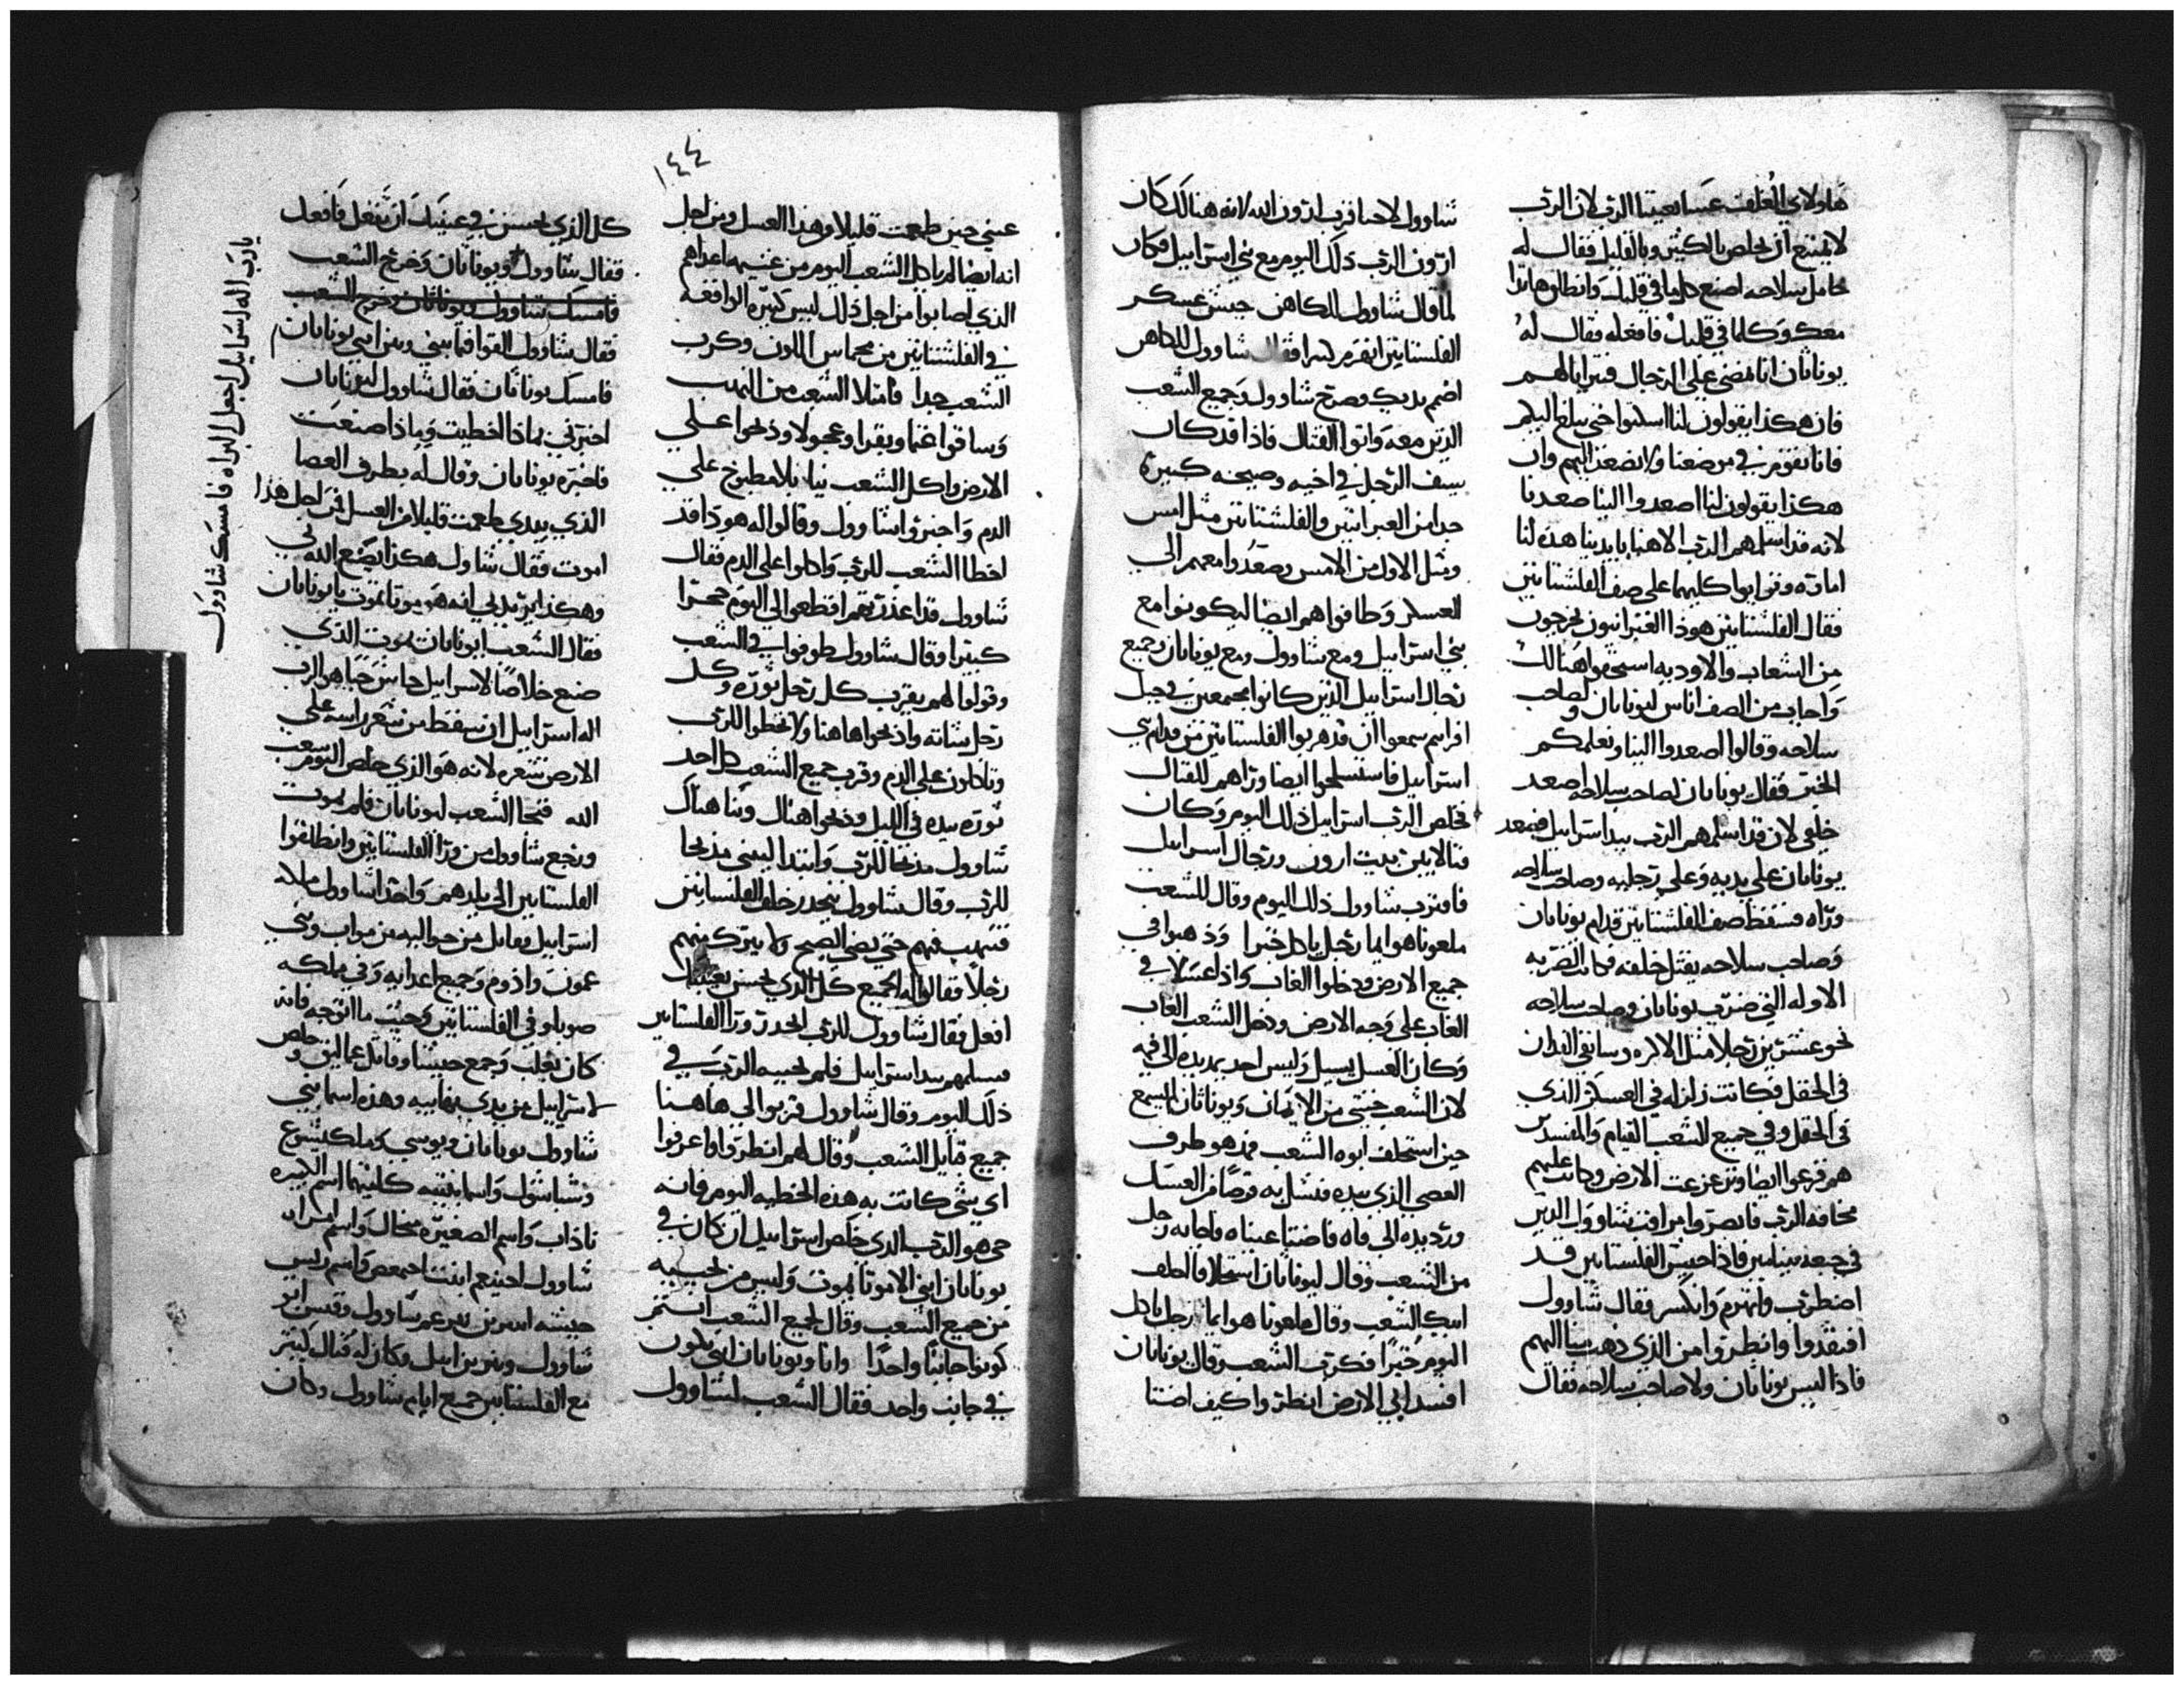 هاولاي الغلف عسا يعيننا الرب لان الرب
لا يمتنع ان يخلص بالكثير وبالقليل فقال له
حامل سلاحه اصنع كلما في قلبك وانطلق هاندا
معك وكلما في قلبك فافعله فقال له
يوناثان انا نمضي علي الرجال فنترايا لهم
فان هكذا يقولون لنا اسكنوا حتي نبلغ اليكم
فانا نقوم في موضعنا ولا نصعد اليهم وان
هكذا يقولون لنا اصعدوا الينا صعدنا
لانه قد اسلمهم الرب الاهنا بايدينا هذه لنا
اماره وتوايوا كليهما علي صف الفلشتانين
فقال الفلشتانين هوذا العبرانيون يخرجون
من الشعاب والاوديه هنالك
واجاب من الصف اناس ليوناثان ولصاحب
سلاحه وقالوا اصعدوا الينا ونعلمكم
الخبر فقال يوناثان لصاحب سلاحه اصعد
خلفي لان قد اسلمهم الرب بيد اسراييل فصعد
يوناثان علي يديه وعلي رجليه وصاحب سلاحه
وراه فسقط صف الفلشتانين قدام يوناثان
وصاحب سلاحه يقتل خلفه وكانت الضربه
الاوله التي ضرب يوناثان وصاحب سلاحه
نحو عشرين رجلا مثل الاكره وسايقي الفدان
في الحقل وكانت زلزله في العسكر الذي
في الحقل وفي جميع الشعب القيام والمفسدين
هم فزعوا ايضا وتزعزعت الارض وكانت عليهم
مخافة الرب فابصروا مراقب شاوول الذين
في جبعه بنيامين فاذا جيش الفلستانين قد
اضطرب وانهزم وانكسر فقال شاوول
افتقدوا وانظروا من الذي ذهب منا اليهم
فاذا ليس يوناثان ولا صاحب سلاحه فقال
شاوول لاحيا قرب ارون الله لانه هنالك كان
ارون الرب ذلك اليوم مع بني اسراييل فكان
لما قال شاوول للكاهن جيش عسكر
الفلستانين انهزم كثيرا فقال شاوول للكاهن
اضم يديك وصرخ شاوول وجميع الشعب
الذين معه واتوا القتال فاذا قد كان
سيف الرجل في اخيه وصيحه كبيره
جدا من العبرانين والفلشتانين مثل امس
ومثل الاول من الامس وصعدوا معهم الي
العسكر وطافوا هم ايضا ليكونوا مع
بني اسراييل ومع شاوول ومع يوناثان وجميع
رجال اسراييل الذين كانوا مجتمعين في جبل
افرايم سمعوا ان قد هربوا الفلستانين من قدام بني
اسراييل فاستسلحوا ايضا وراهم للقتال
فخلص الرب اسراييل ذلك اليوم وكان
قتالا بين بيت ارون ورجال اسراييل
فاقترب شاوول ذلك اليوم وقال للشعب
ملعونا هو ايما رجل ياكل خبزا وذهبوا في
جميع الارض ودخلوا الغاب واذا عسلا في
الغاب علي وجه الارض ودخل الشعب الغاب
وكان العسل يسيل وليس احد يمد يده الي فيه
لان الشعب خشي من الايمان ويوناثان لم يسمع
حين استحلف ابوه الشعب فمد هو طرف
العصي الذي بيده فنشل به قرصا من العسل
ورد يده الي فاه فاضتيا عيناه فاجابه رجل
من الشعب وقال ليوناثان استحلافا احلف
ابيك الشعب وقال ملعونا هو ايما رجل ياكل
اليوم خبزا فكرب الشعب وقال يوناثان
افسد ابي الارض انظروا كيف اضتا
١٤٤
عيني حين طعمت قليلا من هذا العسل ومن اجل
انه ايضا لم ياكل الشعب اليوم من غنيمه اعداهم
الذي اصابوا من اجل ذلك ليس كبيره الواقعه
في الفلشتانين من مخماس اللون وكرب
الشعب جدا فامتلا الشعب من النهب
وساقوا غنما وبقرا وعجولا وذبحوا علي
الارض واكل الشعب نيا بلا مطبوخ علي
الدم واخبروا شاوول وقالوا له هوذا قد
اخطا الشعب للرب واكلوا علي الدم فقال
شاوول قد اغدرتم اقطعوا لي اليوم حجرا
كبيرا وقال شاوول طوفوا في الشعب
وقولوا لهم يقرب كل رجل ثوره وكل
رجل شاته واذبحوا هاهنا ولا تخطوا للرب
وتاكلون علي الدم وقرب جميع الشعب كل احد
ثوره بيده في الليل وذبحوا هناك وبنا هناك
شاوول مذبحا للرب وابتدا ليبني مذبحا
للرب وقال شاوول ننحدر خلف الفلستانين
فننهب فيهم حتي يضي الصبح ولا نترك منهم
رجلا فقالوا له الجميع كل الذي يحسن بعينيك
افعل فقال شاوول للرب انحدر ورا الفلستانين
فتسلمهم بيد اسراييل فلم يجيبه الرب في
ذلك اليوم وقال شاوول قربوا لي هاهنا
جميع قبايل الشعب وقال لهم انظروا واعرفوا
اي شي كانت به هذه الخطيه اليوم فانه
حي هو الرب الذي خلص اسراييل ان كان في
يوناثان ابني الا موتا يموت وليس من يجيبه
من جميع الشعب وقال لجميع الشعب انتم
كونوا جانبا واحدا وانا ويوناثان ابني نكون
في جانب واحد فقال الشعب لشاوول
كل الذي يحسن في عينيك ان تفعل فافعل
فقال شاوول ويوناثان وخرج الشعب
فامسك شاوول ويوناثان وخرج الشعب
فقال شاوول القوا فيما بيني وبين ابني يوناثان
فامسك يوناثان فقال شاوول ليوناثان
اخبرني بماذا اخطيت وماذا صنعت
فاخبره يوناثان وقال له بطرف العصا
الذي بيدي طعمت قليلا من العسل فمن اجل هذا
اموت فقال شاول هكذا يصنع الله لي
وهكذا يزيد لي انه هو موتا تموت يا يوناثان
فقال الشعب ايوناثان يموت الذي
صنع خلاصا لاسراييل حاش حيا هو الرب
اله اسراييل ان سقط من شعر راسه علي
الارض شعره لانه هو الذي خلص اليوم شعب
الله فنجا الشعب ليوناثان فلم يموت
ورجع شاوول من ورا الفلستانين وانطلقوا
الفلستانين الي بلدهم واخذ شاوول مملكة
اسراييل فقاتل من حواليه من مواب وبني
عمون واذوم وجميع اعدايه وفي مملكه
صوبا وفي الفلستانين وحيث ما اتوجه فانه
كان يغلب وجمع جيشا وقاتل عماليق وخلص
اسراييل من يدي ناهبيه وهذه اسما بني
شاوول يوناثان ويوسي وملكيشوع
وشباشول واسما بنتيه كلتيهما اسم الكبيره
ناذاب واسم الصغيره ميخال واسم امراه
شاوول احينعم ابنت اخيمعص واسم رييس
جيشه ابنير بن نير عم شاوول وقيس ابو
شاوول ونير بن ابيل وكان له قتال كبير
مع الفلستانين جميع ايام شاوول وكان
يارب اله اسراييل اجعل البراه فامسك شاوول